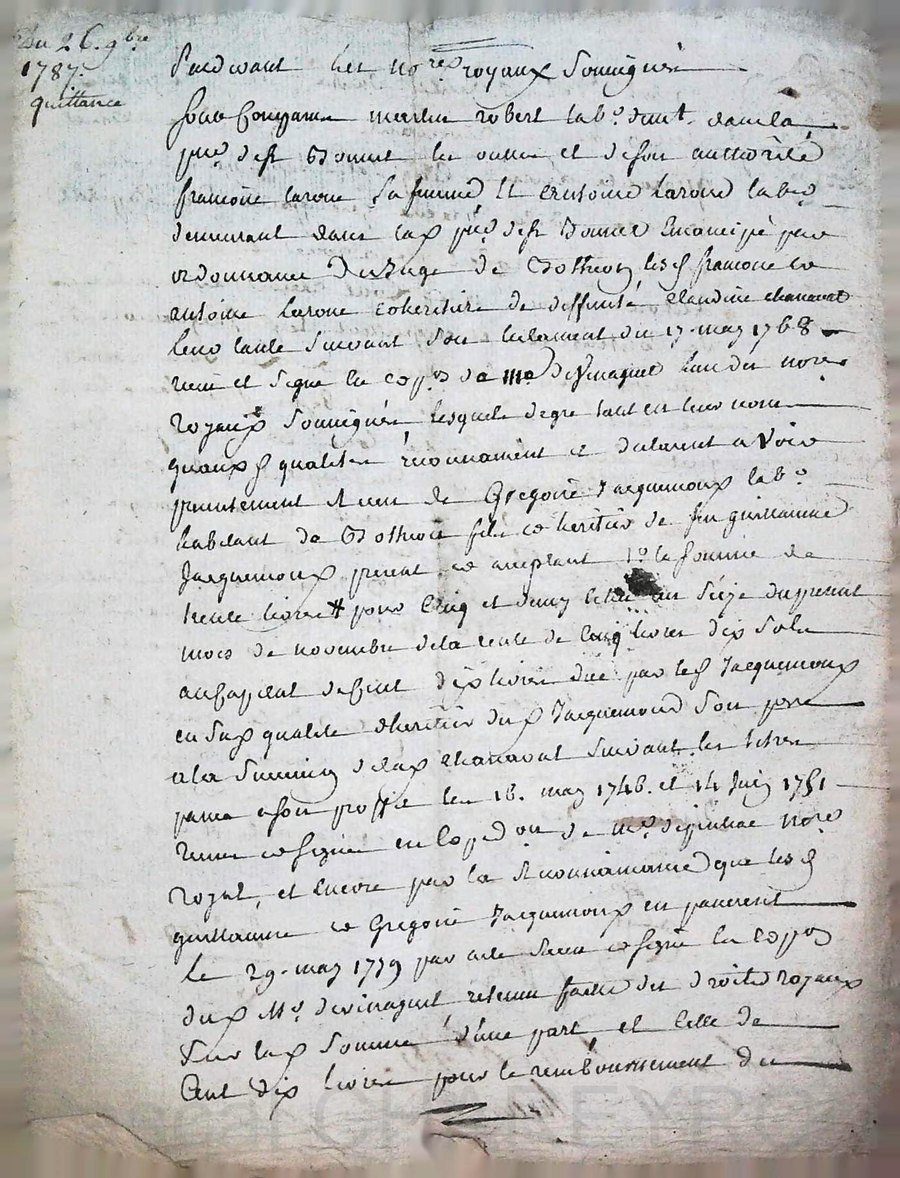 Du 26. 9bre
1787.
quittance
Pardevant les nores royaux Soussignés
sont Comparu martin robert labr dmt dans la
psse de st Bonnet les oulles et de son authorité
francoise laroue Sa femme et antoine laroue labr
demeurant dans lad psse de st Bonnet Emancipé par
ordonnance du Juge de Botheon lesd francoise et
antoine laroue coheritiers de deffunte claudine chanavat
leur tante Suivant Son testament du 17 may 1768
reçu et signé en expon de me Desvinaguet l'un des nores
royaux Soussignés, lesquels de gré tant en leur nom
quaux d qualités reconnaissent et declarent avoir
presentement reçu de Gregoire Jacquemoux labr
habitant de Botheon fils et heritier de feu guillaume
Jacquemoux present et acceptant 1o la somme de
trente livres pour Cinq et demy au Seize du present
mois de novembre de la rente de Cinq livres dix Sols
au Capital de Cent dix livres due par led Jacquemoux
en Sad qualité d'heritier dud Jacquemoux Son pere
a la Succession de lad chanavat Suivant les titres
passés a son proffit les 18. may 1746. et 14 Juin 1751
reçus et signés en expon de me depinhac nore
royal, et Encore par la Reconnaissance que lesd
guillaume et Gregoire Jacquemoux en passerent
le 29. may 1779 par acte reçu et signé en expon
dud Me desvinaguet retenue faitte des droits royaux
Sur lad Somme d'une part et Celle de
Cent dix livres pour le remboursement du